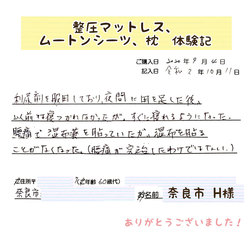 整圧マットレス、
ムートンシーツ、枕　体験記
ご購入日　2020年9月26日
記入日　令和2年10月11日
利尿剤を服用しており、夜間に何回も足した後、
以前は寝つかれなかったが、すぐに寝れるようになった。
腰痛で湿布薬を貼っていたが、湿布を貼る
ことがなくなった。(腰痛が完治したわけではない。)
ご住所
奈良市
ご年齢(60歳代)
お名前　奈良市　H様
ありがとうございました!